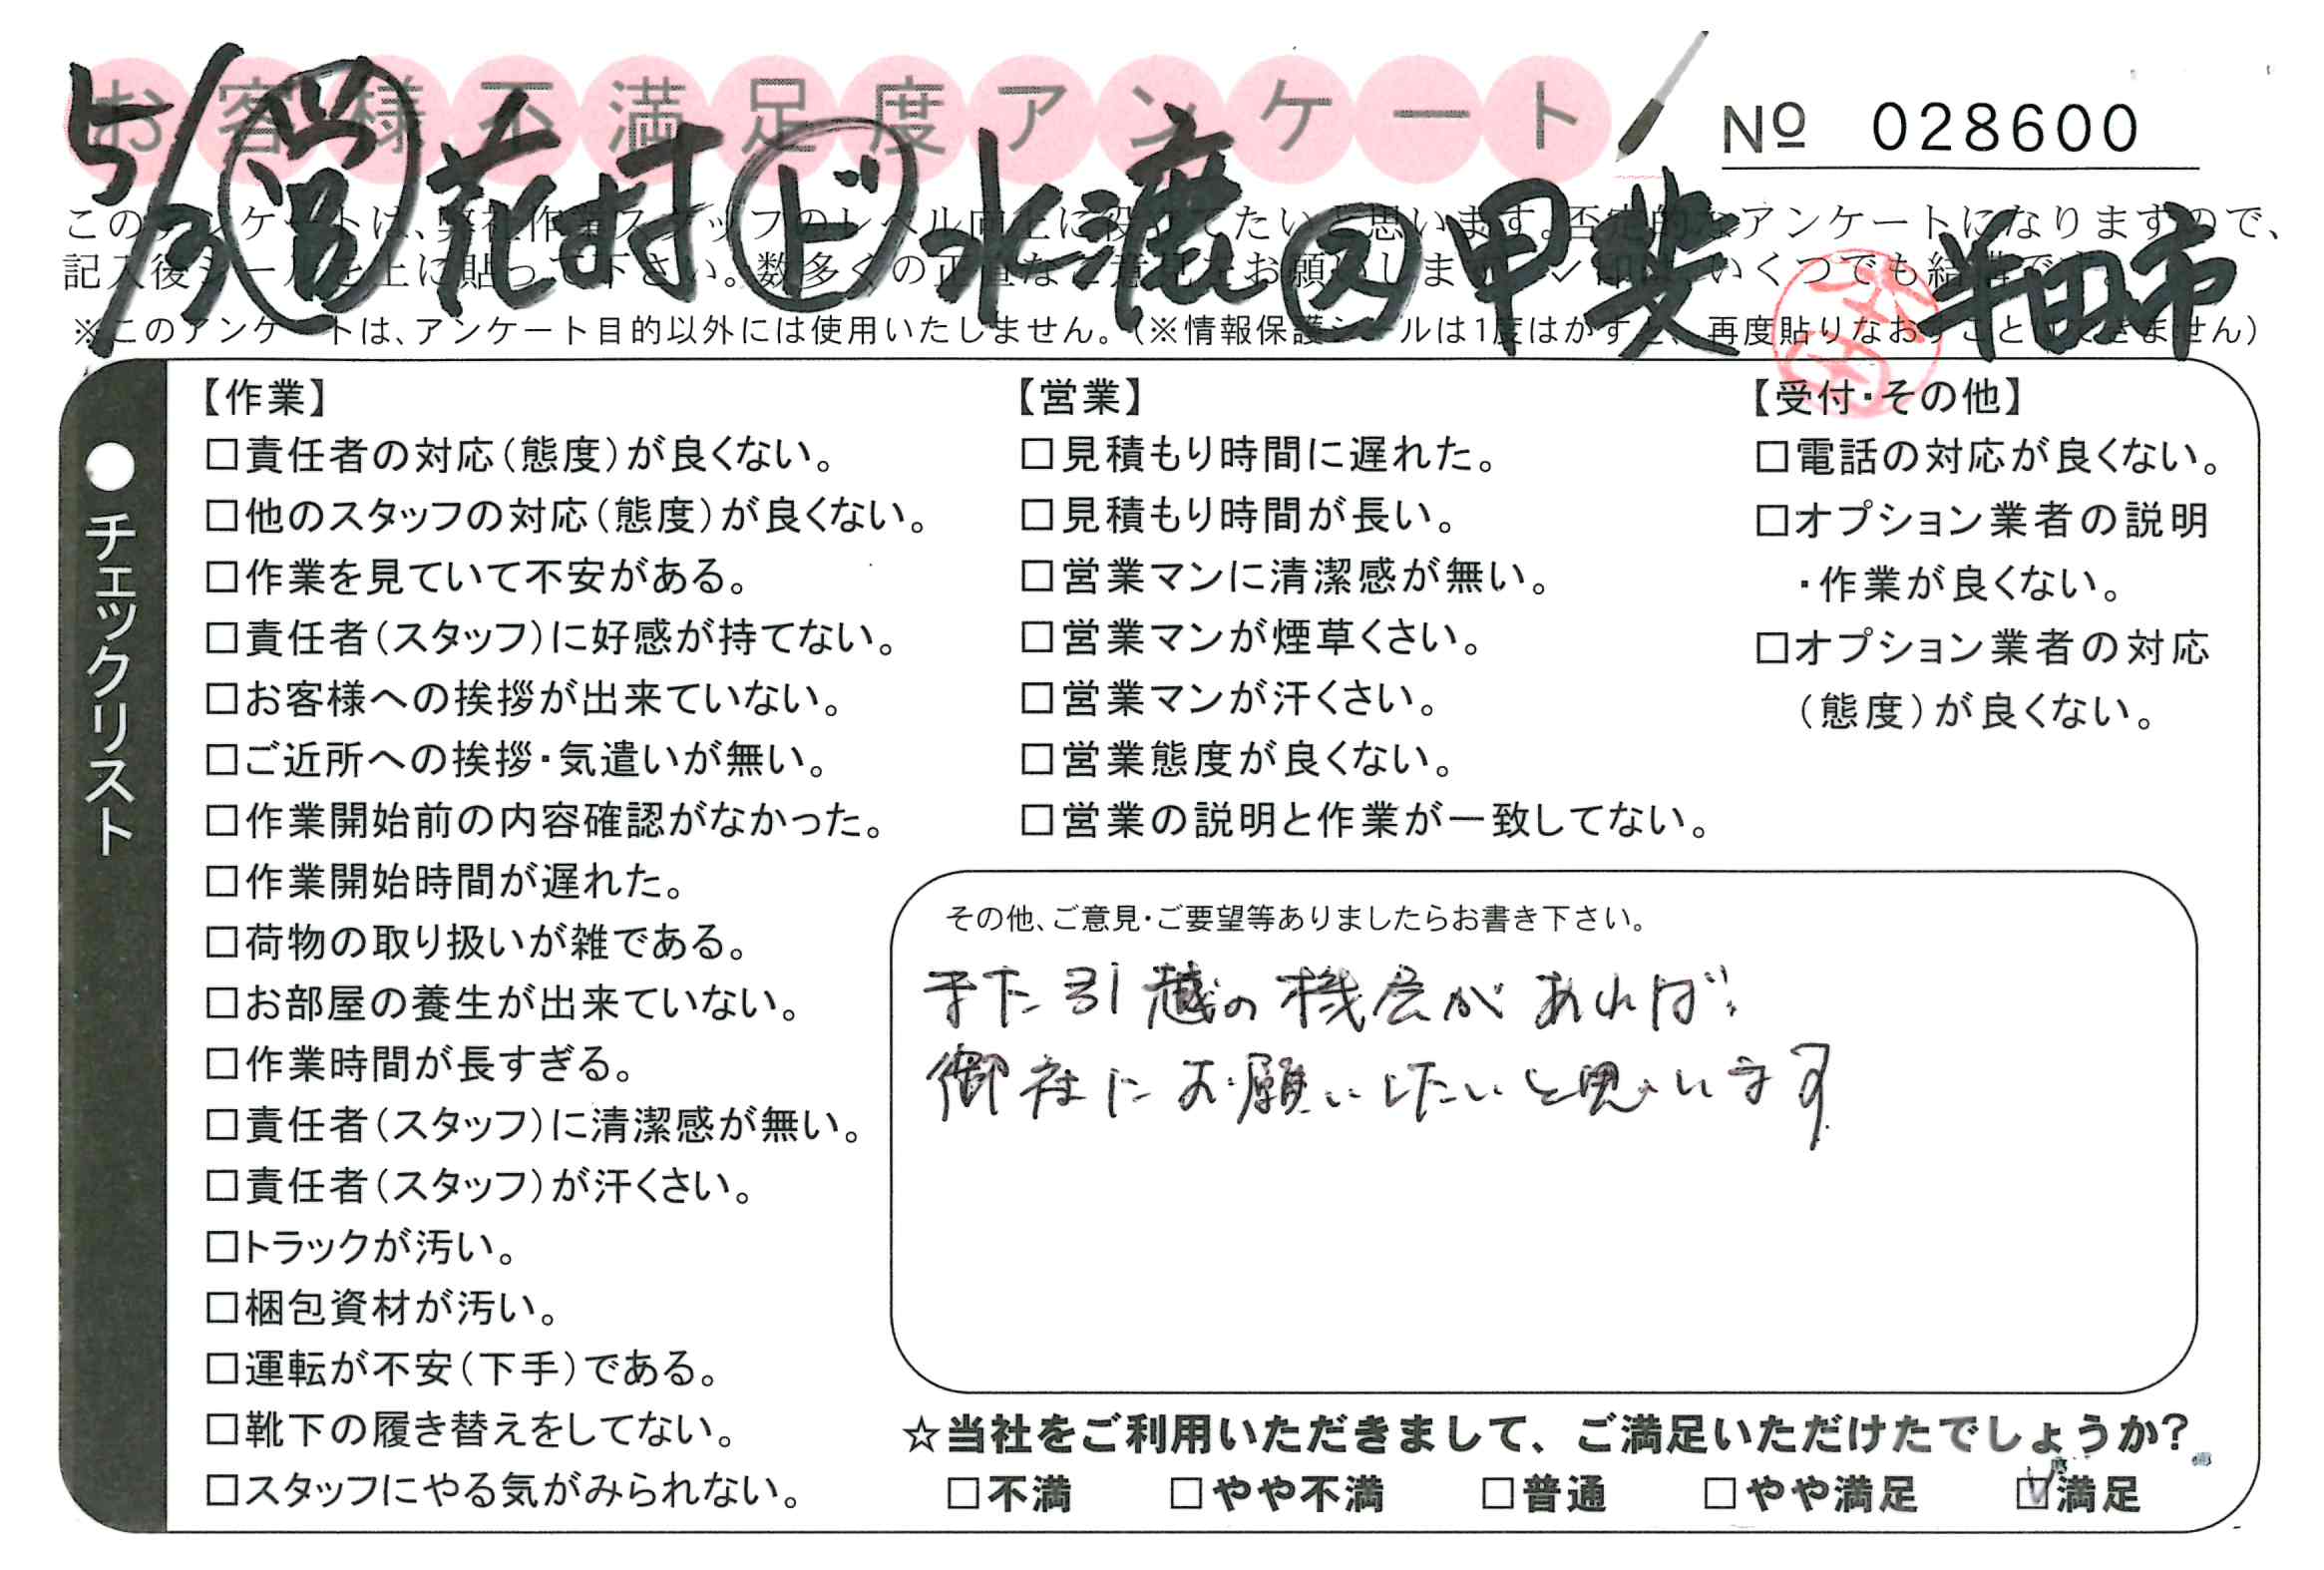 お客様不満足度アンケート
№ 028600
5/3 花村 ビ 水漉 又 甲斐 半田市
このアンケートは、弊社作業スタッフのレベル向上に役立てたいと思います。否定的なアンケートになりますので、
記入後シールを上に貼って下さい。数多くの正直なご意見をお願いします。レ印はいくつでも結構です。
※このアンケートは、アンケート目的以外には使用いたしません。(※情報保護シールは1度はがすと、再度貼りなおすことはできません)
●チェックリスト
【作業】
□責任者の対応(態度)が良くない。
□他のスタッフの対応(態度)が良くない。
□作業を見ていて不安がある。
□責任者(スタッフ)に好感が持てない。
□お客様への挨拶が出来ていない。
□ご近所への挨拶・気遣いが無い。
□作業開始前の内容確認がなかった。
□作業開始時間が遅れた。
□荷物の取り扱いが雑である。
□お部屋の養生が出来ていない。
□作業時間が長すぎる。
□責任者(スタッフ)に清潔感が無い。
□責任者(スタッフ)が汗くさい。
□トラックが汚い。
□梱包資材が汚い。
□運転が不安(下手)である。
□靴下の履き替えをしてない。
□スタッフにやる気がみられない。
【営業】
□見積もり時間に遅れた。
□見積もり時間が長い。
□営業マンに清潔感が無い。
□営業マンが煙草くさい。
□営業マンが汗くさい。
□営業態度が良くない。
□営業の説明と作業が一致してない。
【受付・その他】
□電話の対応が良くない。
□オプション業者の説明
・作業が良くない。
□オプション業者の対応
(態度)が良くない。
その他、ご意見・ご要望等ありましたらお書き下さい。
また引越の機会があれば、
御社にお願いしたいと思います
☆当社をご利用いただきまして、ご満足いただけたでしょうか?
□不満 □やや不満 □普通 □やや満足 ☑満足